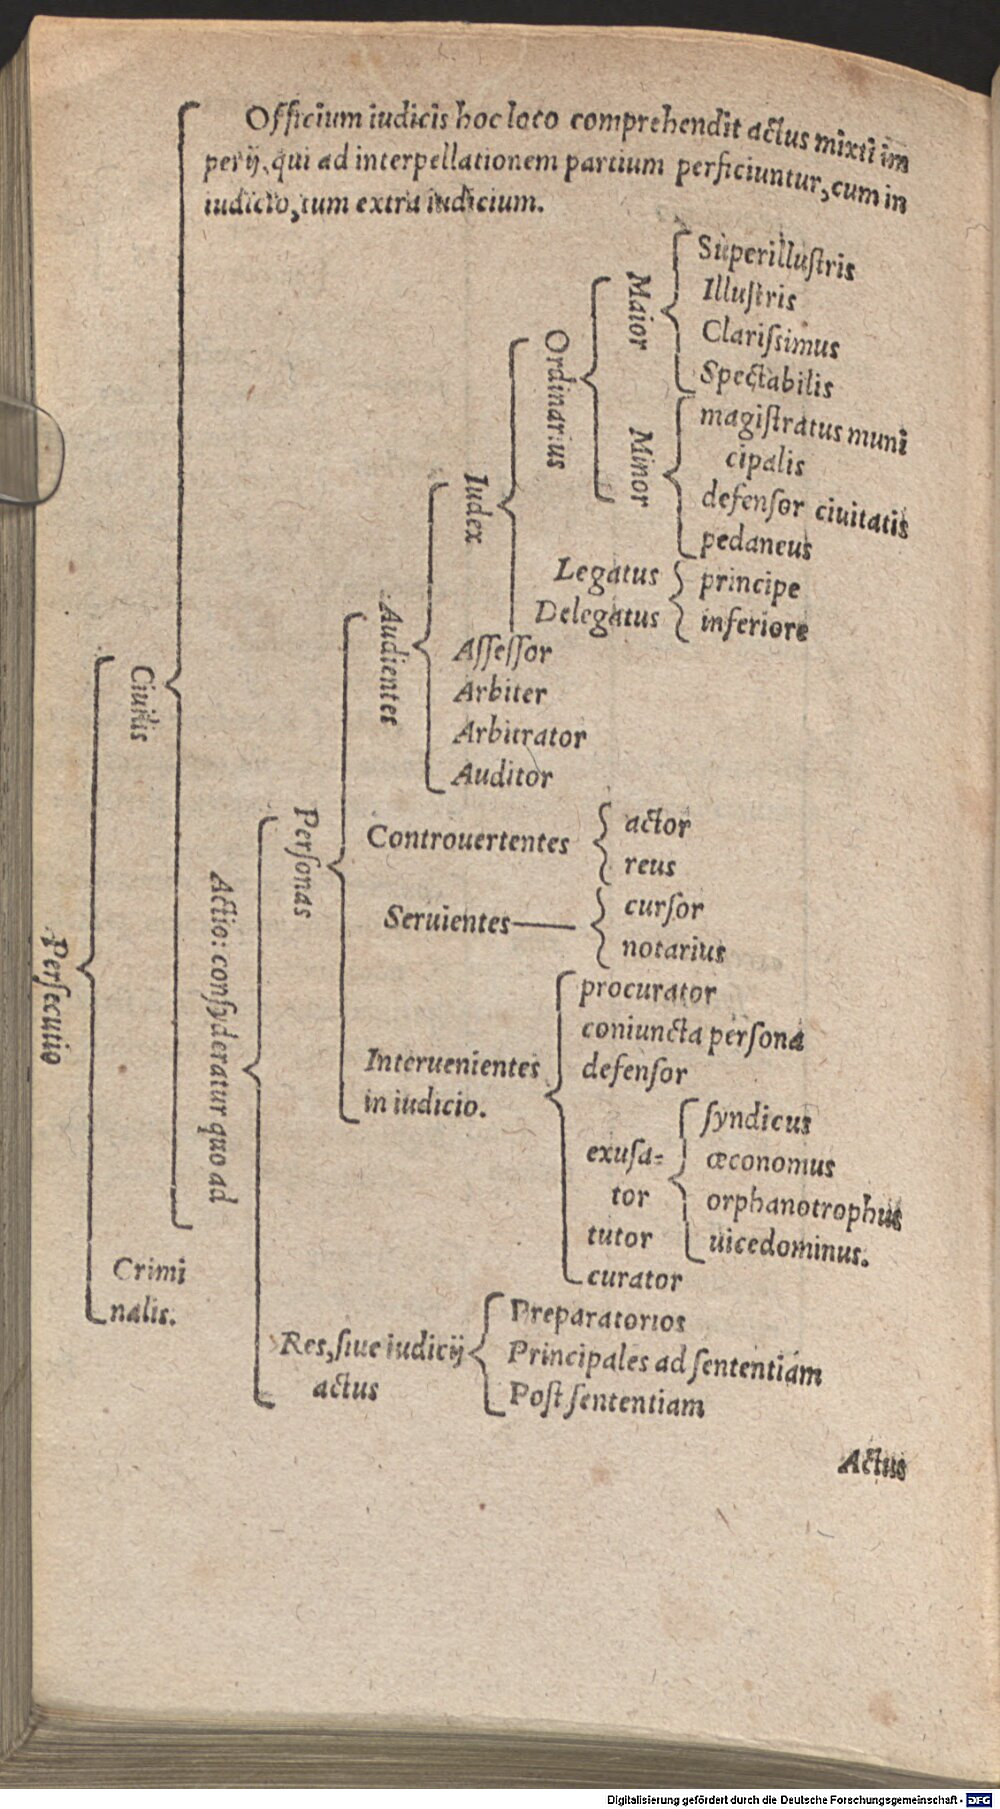 Officium iudicis hoc loco comprehendit actus mixti im
perij, qui ad interpellationem partium perficiuntur, cum in
iudicio, tum extra iudicium.
Persecutio
Ciuilis
Crimi
nalis.
Actio: consyderatur quo ad
Personas
Audientes
Iudex
Ordinarius
Maior
Superillustris
Illustris
Clarissimus
Spectabilis
Minor
magistratus muni
cipalis
defensor ciuitatis
pedaneus
Legatus
Delegatus
principe
inferiore
Assessor
Arbiter
Arbitrator
Auditor
Controuertentes
actor
reus
Seruientes
cursor
notarius
Interuenientes
in iudicio.
procurator
coniuncta persona
defensor
exusa=
tor
syndicus
œconomus
orphanotrophus
uicedominus.
tutor
curator
Res, siue iudicij
actus
Preparatorios
Principales ad sententiam
Post sententiam
Actus
Digitalisierung gefördert durch die Deutsche Forschungsgemeinschaft - DFG